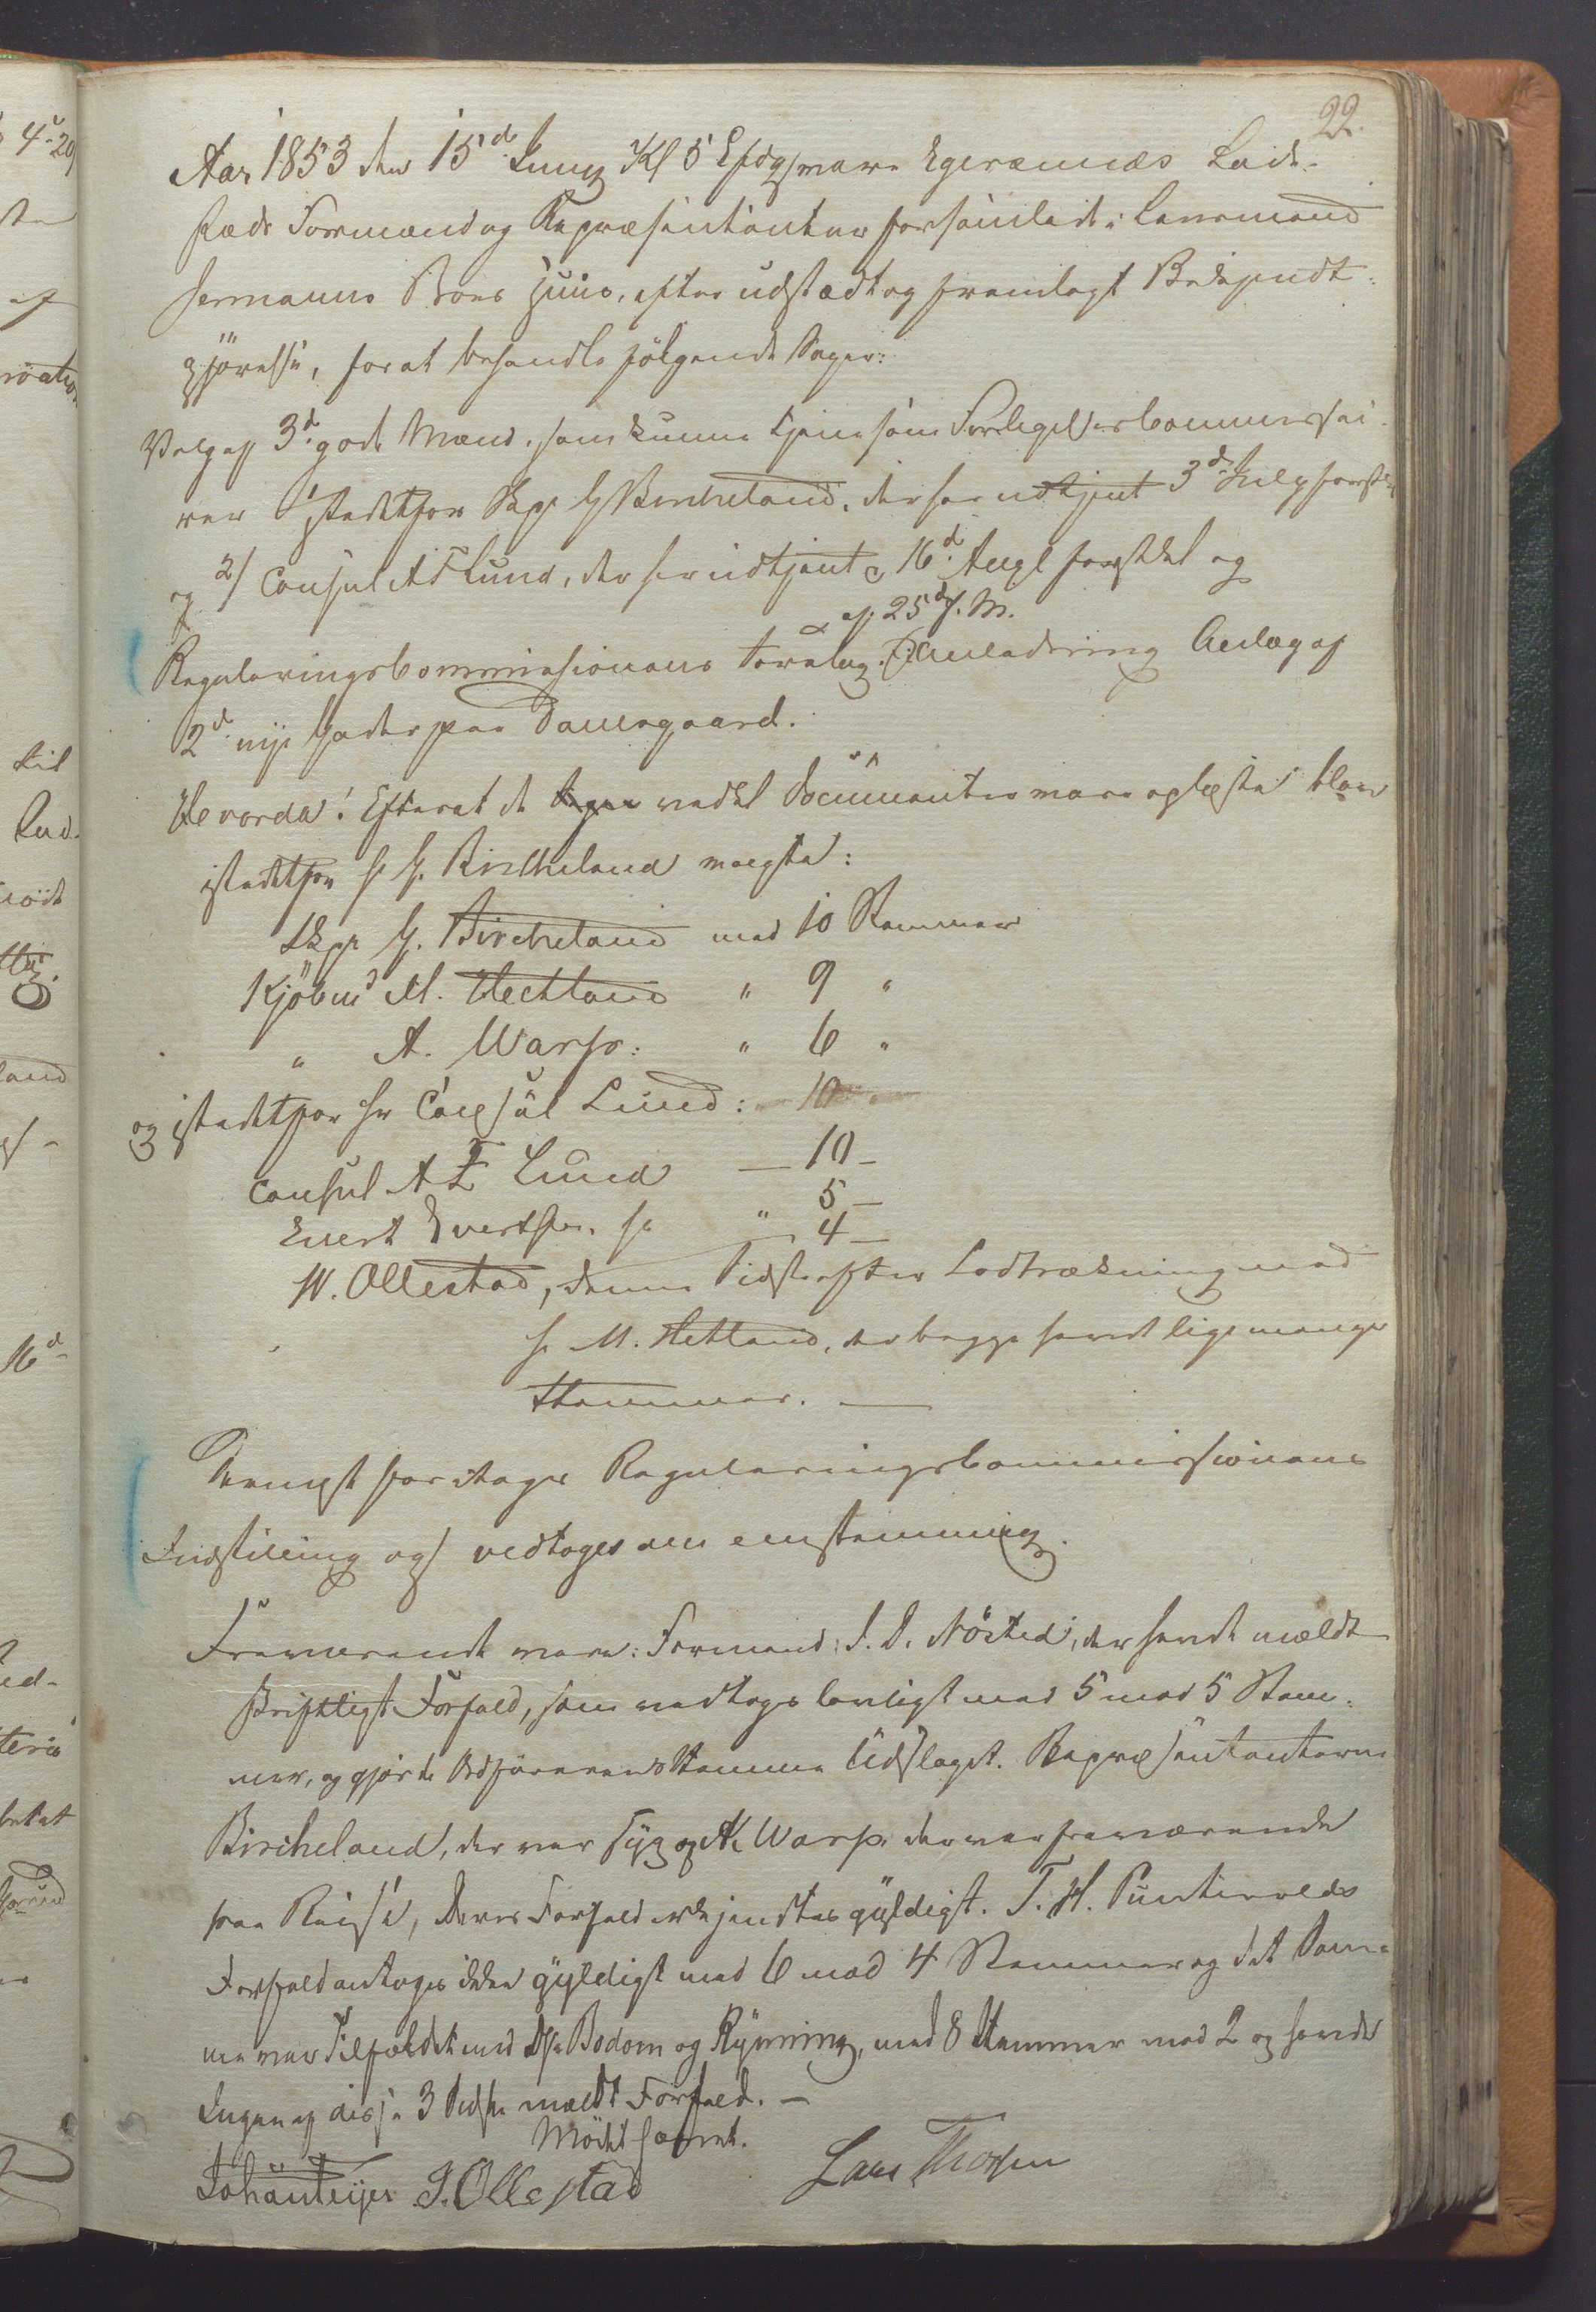 22.
Aar 1853 den 15d. Juny Kl 5 Eftdg vare Egersunds Lade-
steds Formænd og Repræsentanter forsamlede i Lensmand
Hermanns Boes Huus, efter udstædt og fremlagt Bekjendt-
gjørelse, for at behandle følgende Sager:
Valg af 3d. gode Mænd, som kunne tjene som Forligelsescommissai-
rer istædetfor Skp. G Bircheland, der har udtjent 3d. July førstk.
og 2/ Consul A F Lund, der har udtjent 16d. Augt førstkl og
af 25d f. M.
Reguleringscommissionens Forslag Anledning Anlæg af
2d. nye Gader paa Damsgaard.
Hevorda! Efter at de vedkl Documenter vare oplæste blev
istædetfor Hr G. Birkheland valgte:
Skpr G. Bircheland med 10 Stemmer
Kjöbmd M. Hechland " 9 "
" A. Warp: " 6 "
og istædetfor Hr Consul Lund: 10
Consul A F Lund — 10 —
Evert Evertsen sr " 5 —
— 4 —
W. Ollestad, denne Sidste efter Lodtrækning med
Hr M. Hetland, der begge havde lige mange
Stemmer. —
Dernæst foretoges Reguleringscommissionens
Indstilling og vedtoges den eenstemmig.
Fraværende vare: Formand: J. D. Nösted, der havde meldt
skriftligt Forfald, som vedtoges lovligt med 5 mod 5 Stem-
mer, og gjorde Ordførerens Stemme Udslaget. Repræsentanterne
Bircheland, der var syg og A. Warp der var fraværende
paa Reise, deres Forfald erkjendtes gyldigt. T. H. Puntervolds
Forfald antoges ikke gyldigt med 6 mod 4 Stemmer og det Sam-
me var Tilfældet med Dhr Bodom og Rynning, med 8 Stemmer mod 2 og havde
Ingen af disse 3 Sidste meldt Forfald. —
Mödet hævet.
Johan Feyer J. Ollestad Lars Thorsen